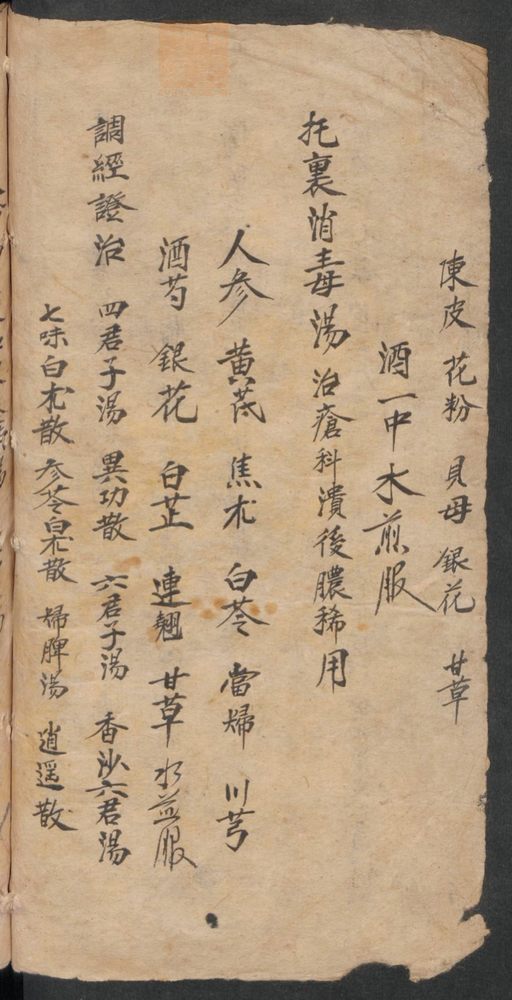 陳皮 花粉 貝母 銀花 甘草
酒一中水煎服
托裏消毒湯 治瘡科潰後膿稀用
人参 黄芪 焦朮 白苓 當歸 川芎
酒芍 銀花 白芷 連翹 甘草 水煎服
調經證治 四君子湯 異功散 六君子湯 香沙六君湯
七味白朮散 参苓白朮散 歸脾湯 逍遥散